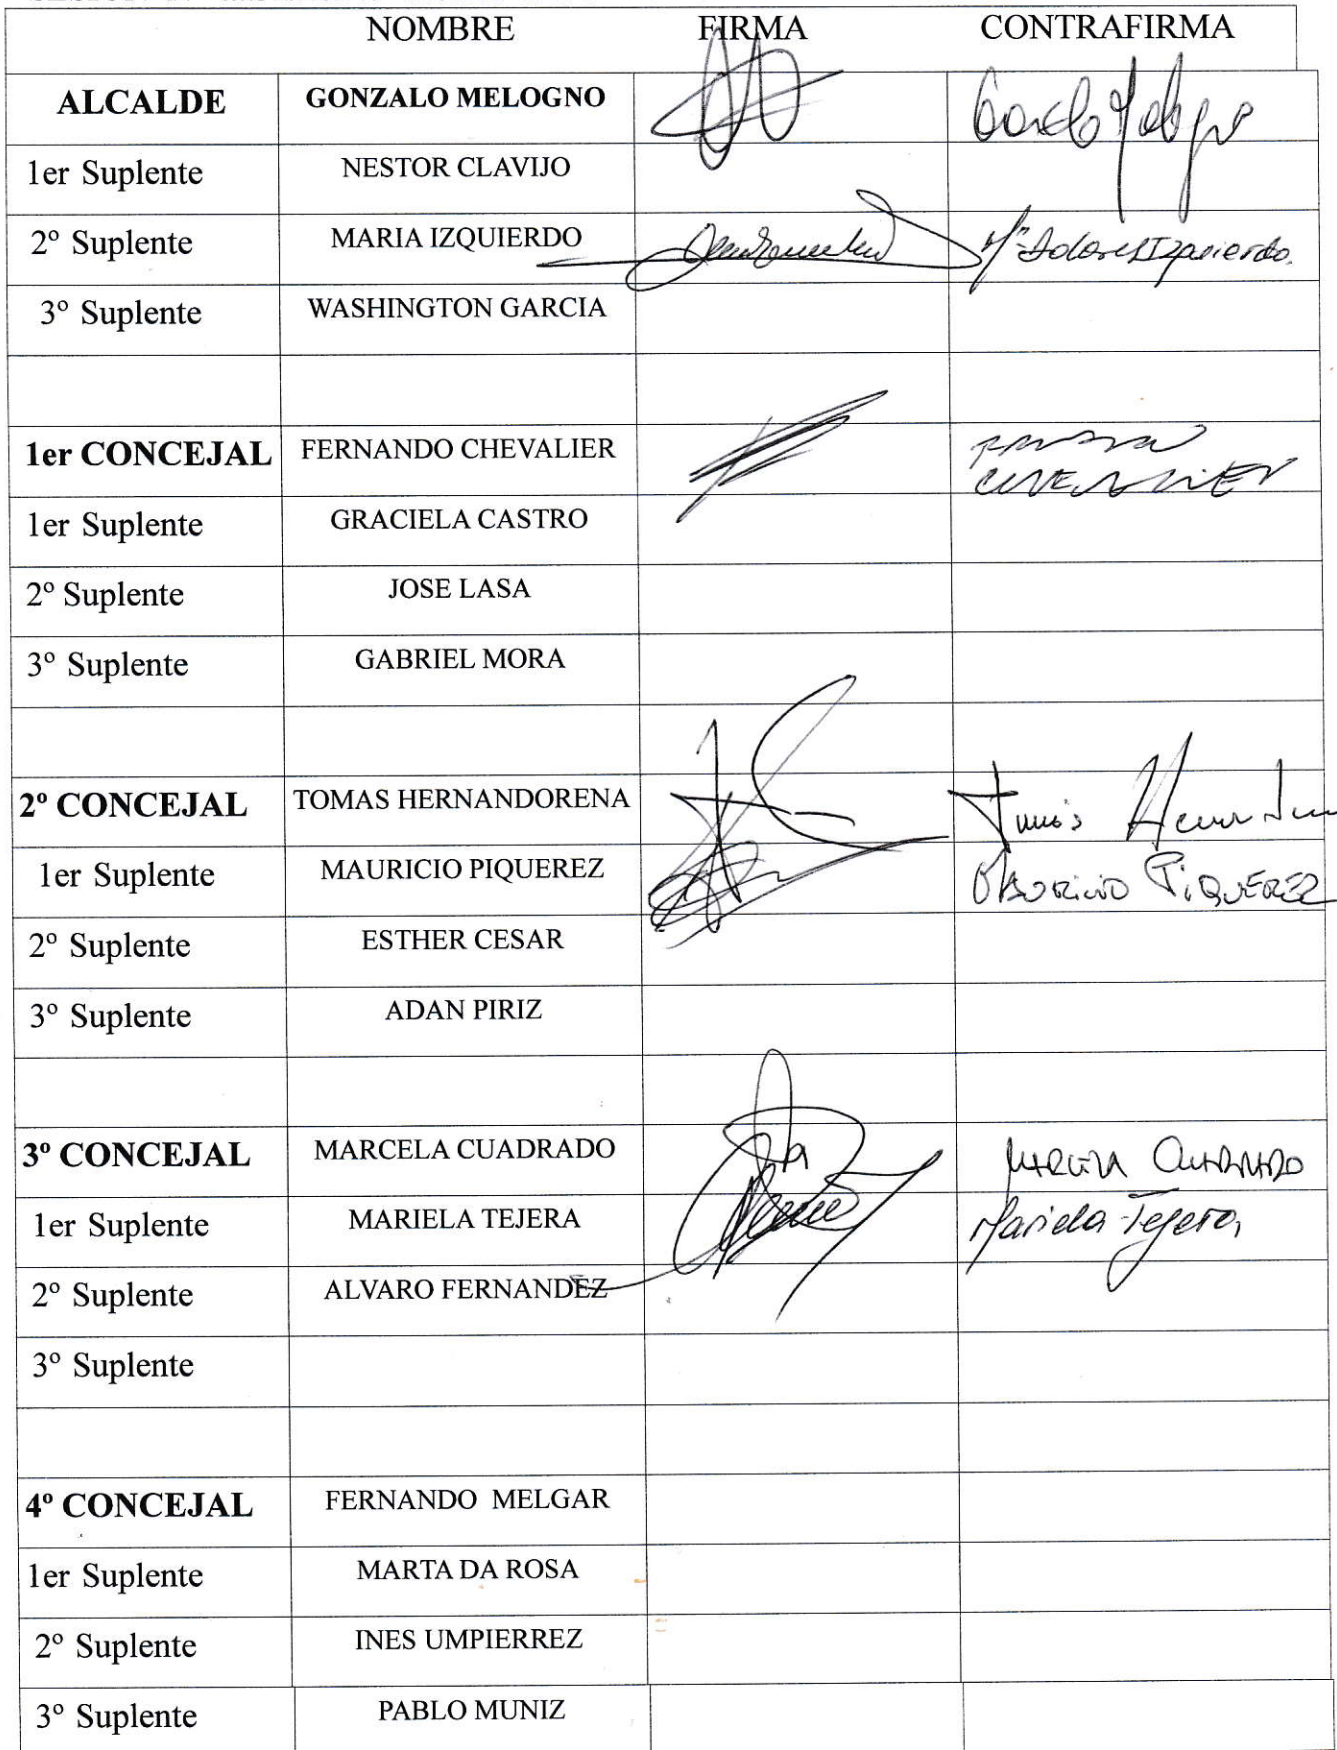 NOMBRE FIRMA CONTRAFIRMA
ALCALDE GONZALO MELOGNO
1er Suplente NESTOR CLAVIJO
2º Suplente MARIA IZQUIERDO Mª Dolores Izquierdo.
3º Suplente WASHINGTON GARCIA
1er CONCEJAL FERNANDO CHEVALIER
1er Suplente GRACIELA CASTRO
2º Suplente JOSE LASA
3º Suplente GABRIEL MORA
2º CONCEJAL TOMAS HERNANDORENA
1er Suplente MAURICIO PIQUEREZ MAURICIO PIQUEREZ
2º Suplente ESTHER CESAR
3º Suplente ADAN PIRIZ
3º CONCEJAL MARCELA CUADRADO MARCELA CUADRADO
1er Suplente MARIELA TEJERA Mariela Tejera
2º Suplente ALVARO FERNANDEZ
3º Suplente
4º CONCEJAL FERNANDO MELGAR
1er Suplente MARTA DA ROSA
2º Suplente INES UMPIERREZ
3º Suplente PABLO MUNIZ